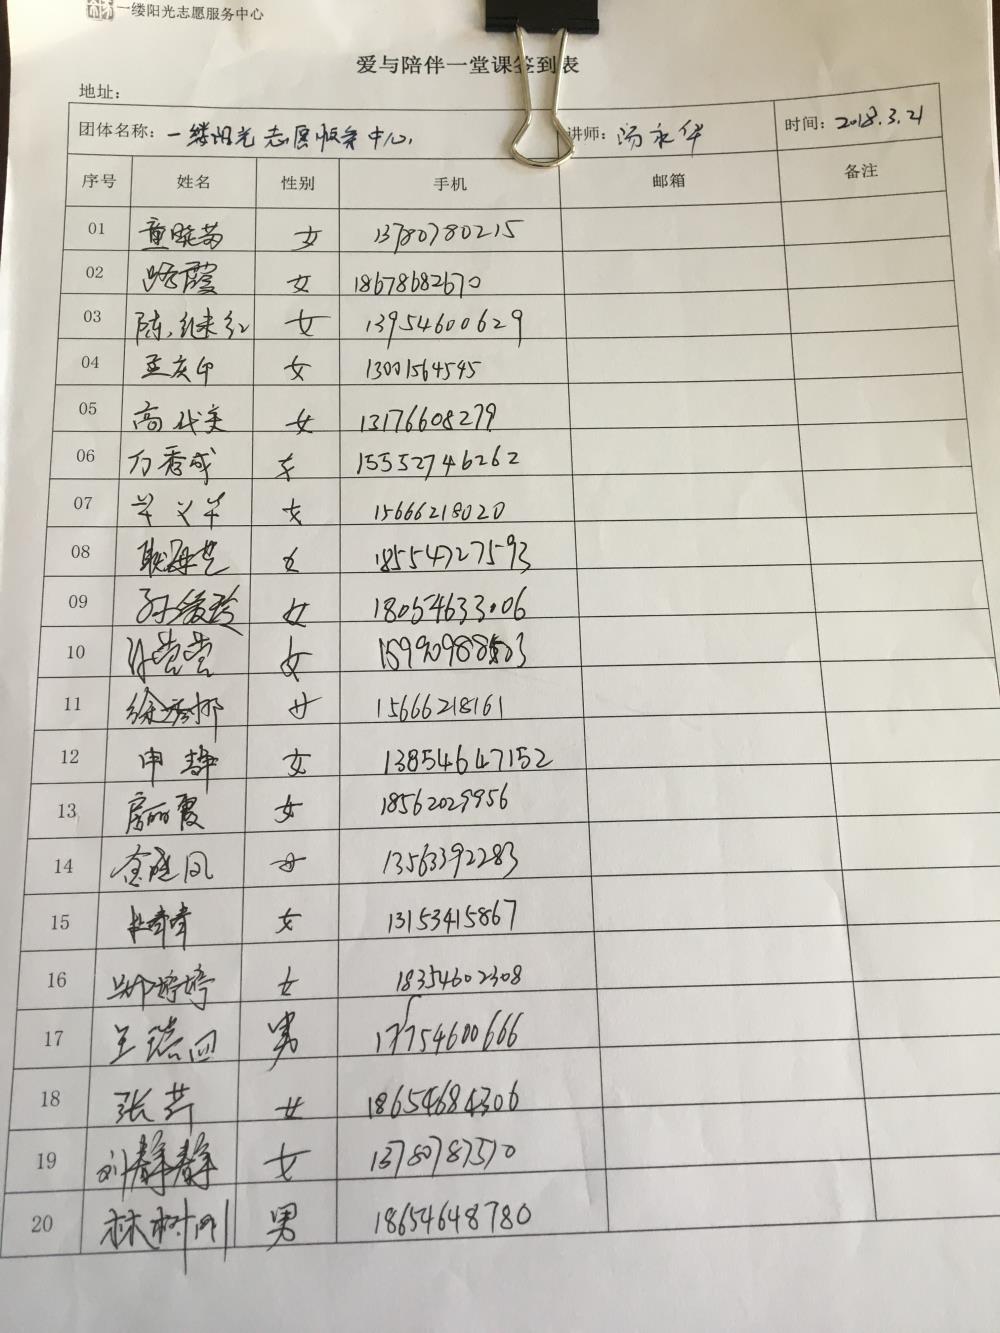 一缕阳光志愿服务中心
爱与陪伴一堂课签到表
地址：
团体名称：一缕阳光志愿服务中心 讲师：汤永华 时间：2018.3.21
序号 姓名 性别 手机 邮箱 备注
01 女 13780780215
02 路霞 女 18678682670
03 陈继红 女 13954600629
04 女 13001564545
05 高代美 女 13176608279
06 万秀成 女 15552746262
07 女 15666218020
08 女 18554727593
09 孙爱玲 女 18054633006
10 许营营 女
11 徐秀娜 女 15666218161
12 申静 女 13854647152
13 房丽霞 女 18562029956
14 女 13563392283
15 杜幸幸 女 13153415867
16 郑婷婷 女 18354602308
17 男 17754600666
18 张芹 女 18654684306
19 刘静静 女 13780787570
20 林树刚 男 18654648780